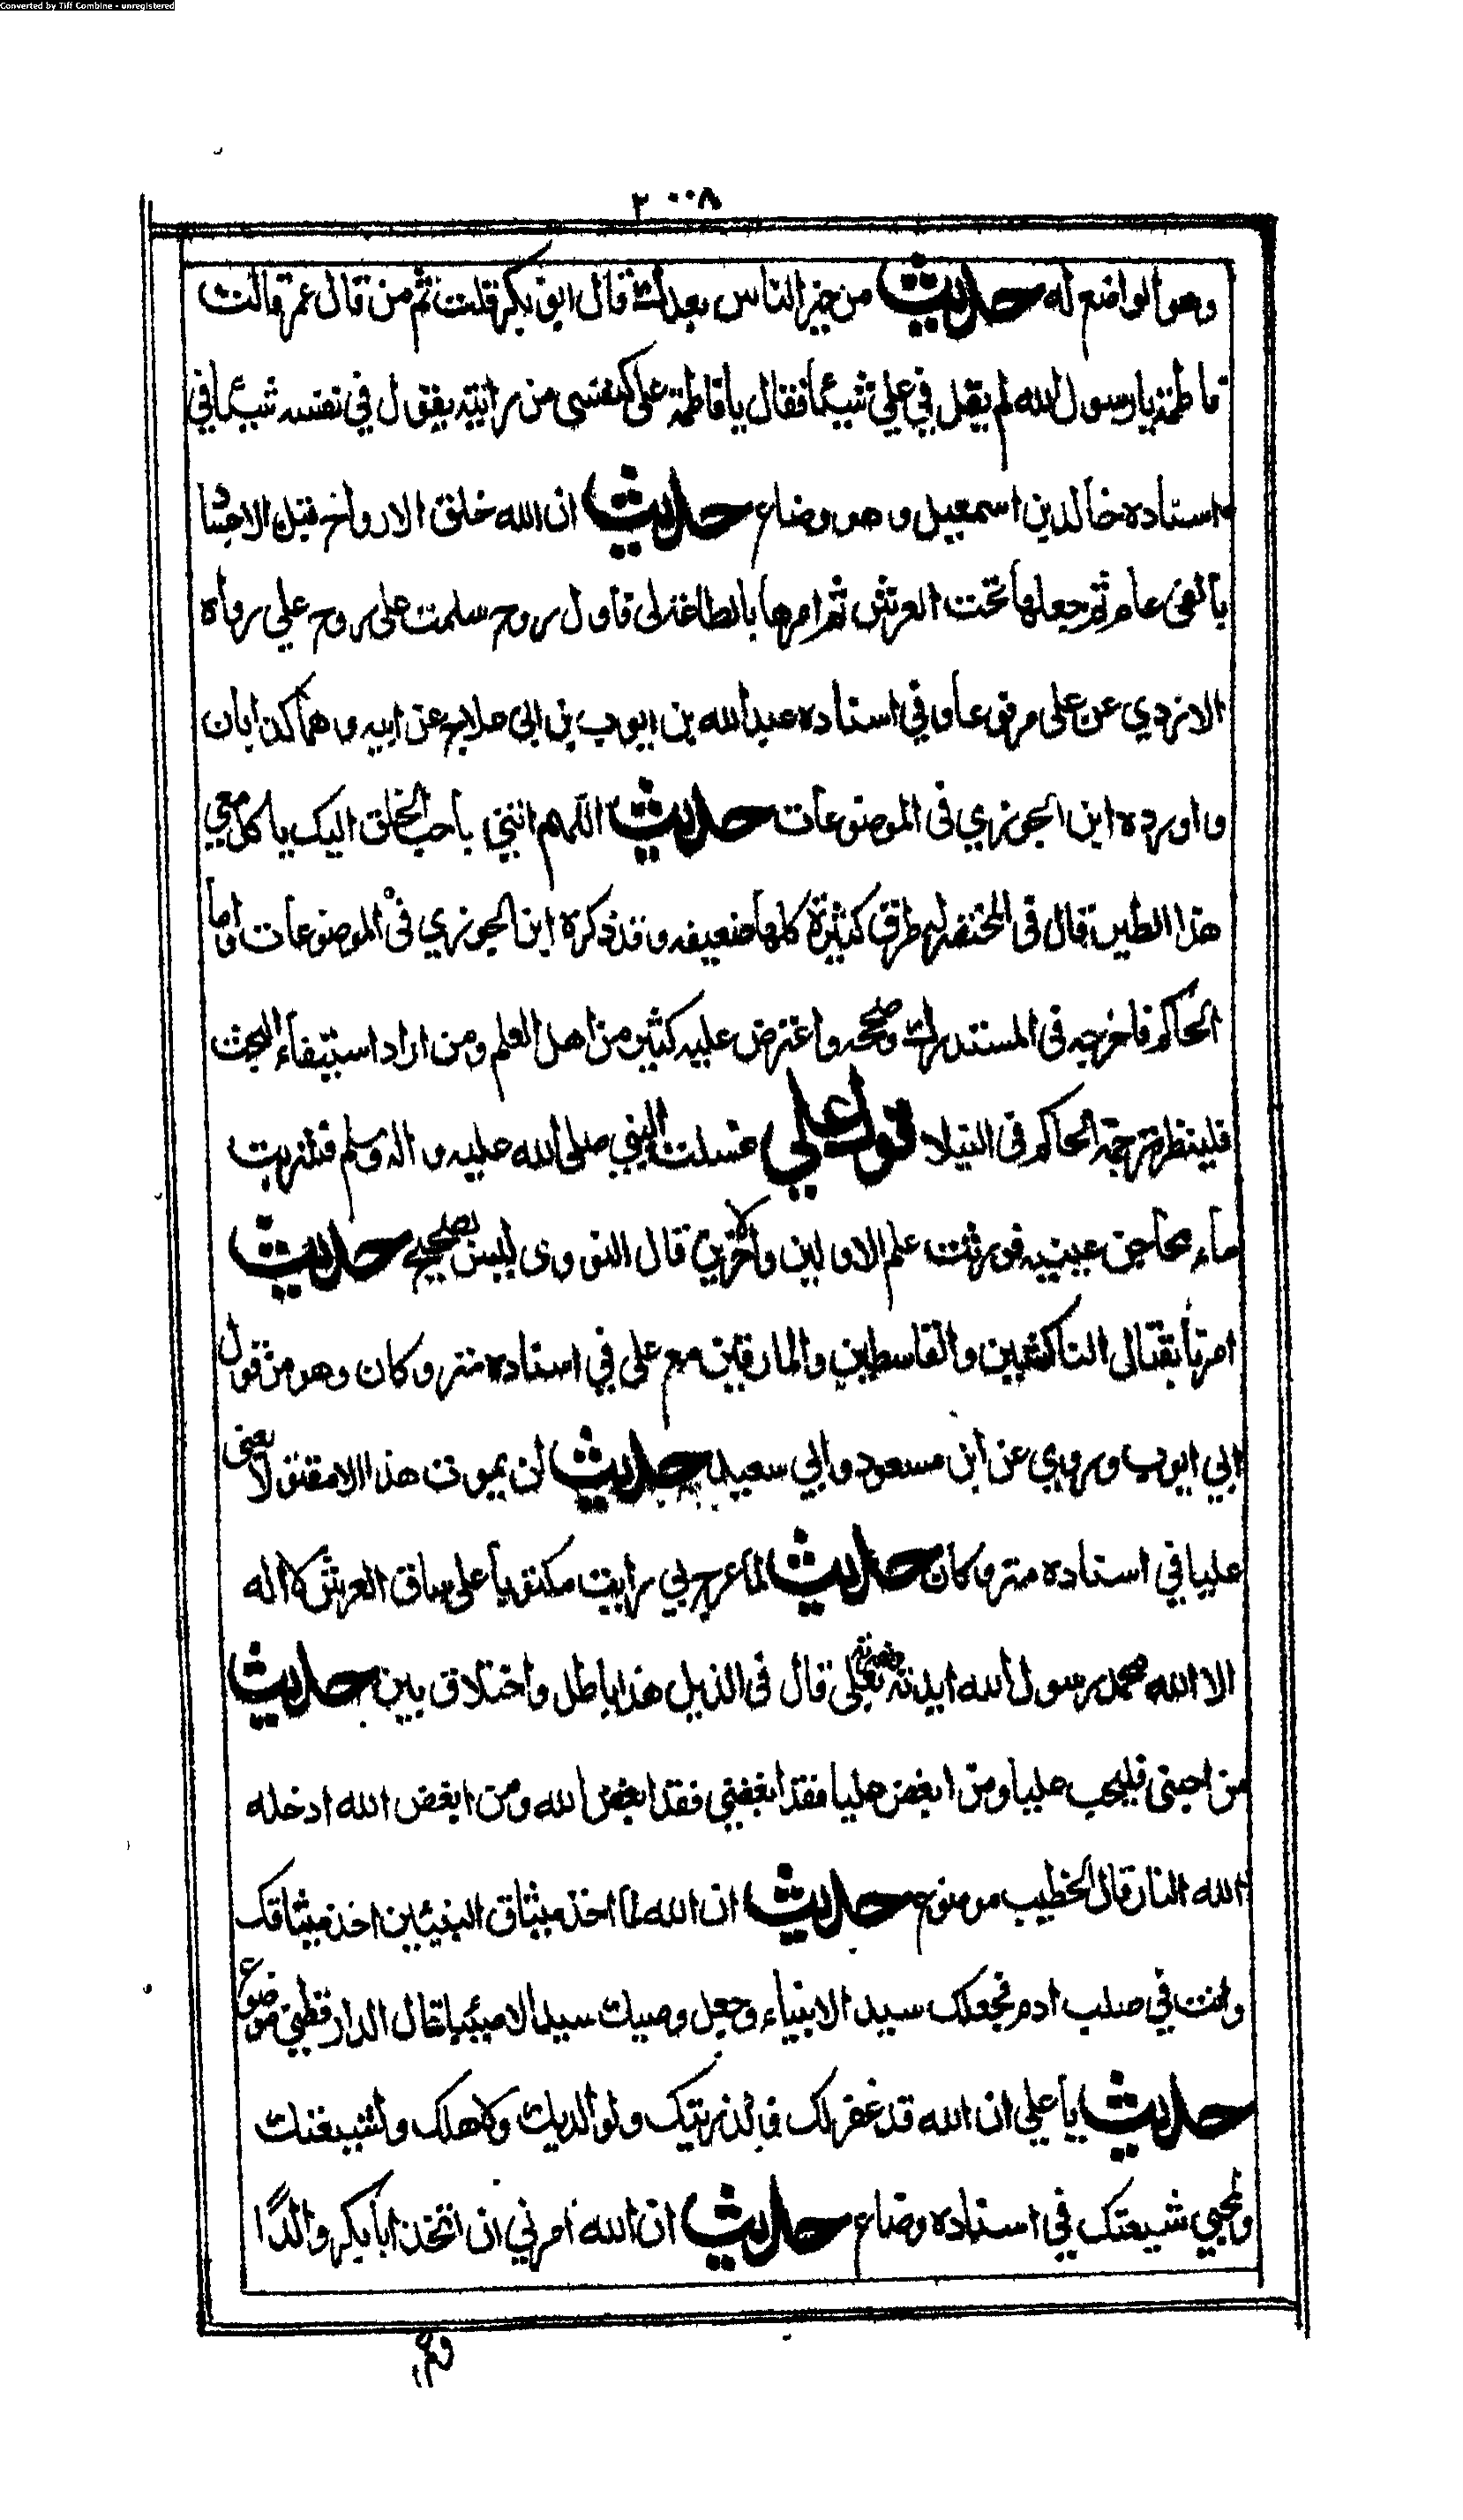 Converted by Tiff Combine - unregistered
٢٠٠٨
وهو الواضع له حديث من خير الناس بعدك قال ابو بكر قلت ثم من قال عمر قالت
فاطمة يا رسول الله لم يقل في علي شيئا فقال يا فاطمة علي كنفسى من رايته يقول في نفسه شيئا في
اسناده خالد بن اسمعيل وهو وضاع حديث ان الله خلق الارواح قبل الاجساد
بالفي عام ثم جعلها تحت العرش ثم امرها بالطاعة لى فاول روح سلمت على روح علي رواه
الازدي عن على مرفوعا وفي اسناده عبدالله بن ايوب بن ابى علاج عن ابيه وهما كذابان
واورده ابن الجوزي فى الموضوعات حديث اللهم ائتني باحب الخلق اليك ياكل معي
هذا الطير قال فى المختصر له طرق كثيرة كلها ضعيفه وقد ذكره ابن الجوزي فى الموضوعات واما
الحاكم فاخرجه فى المستدرك وصححه واعترض عليه كثير من اهل العلم ومن اراد استيفاء البحث
فلينظر ترجمة الحاكم فى النبلا قول علي غسلت النبي صلى الله عليه واله وسلم فشربت
ماء محاجر عينيه فورثت علم الاولين والاخرين قال النووى ليس بصحيح حديث
امرنا بقتال الناكثين والقاسطين والمارقين مع على في اسناده متروكان وهو من قول
ابي ايوب وروي عن ابن مسعود وابي سعيد حديث لن يموت هذا الا مقتولا يعنى
عليا في اسناده متروكان حديث لما عرج بي رايت مكتوبا على ساق العرش لا اله
الا الله محمد رسول الله ايدته ونصرته بعلى قال فى الذيل هذا باطل واختلاق بين حديث
من احبنى فليحب عليا ومن ابغض عليا فقد ابغضني فقد ابغض الله ومن ابغض الله ادخله
الله النار قال الخطيب موضوع حديث ان الله لما اخذ ميثاق النبيين اخذ ميثاقك
وانت في صلب ادم فجعلك سيد الانبياء وجعل وصيك سيد الاوصيا قال الدارقطني موضوع
حديث يا علي ان الله قد غفر لك ولذريتك ولوالديك ولاهلك ولشيعتك
ولمحبي شيعتك في اسناده وضاع حديث ان الله امرني ان اتخذ ابا بكر والدا